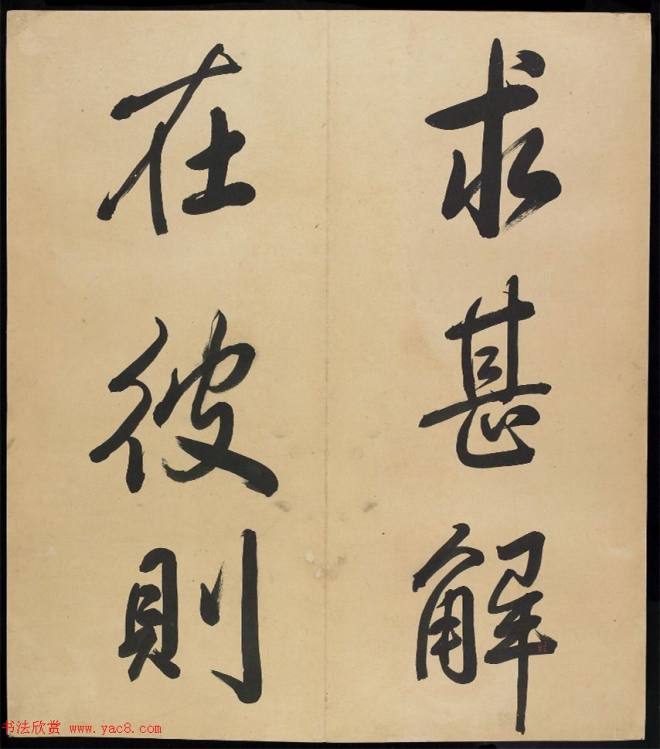 求甚解
在彼則
书法欣赏 www.yac8.com